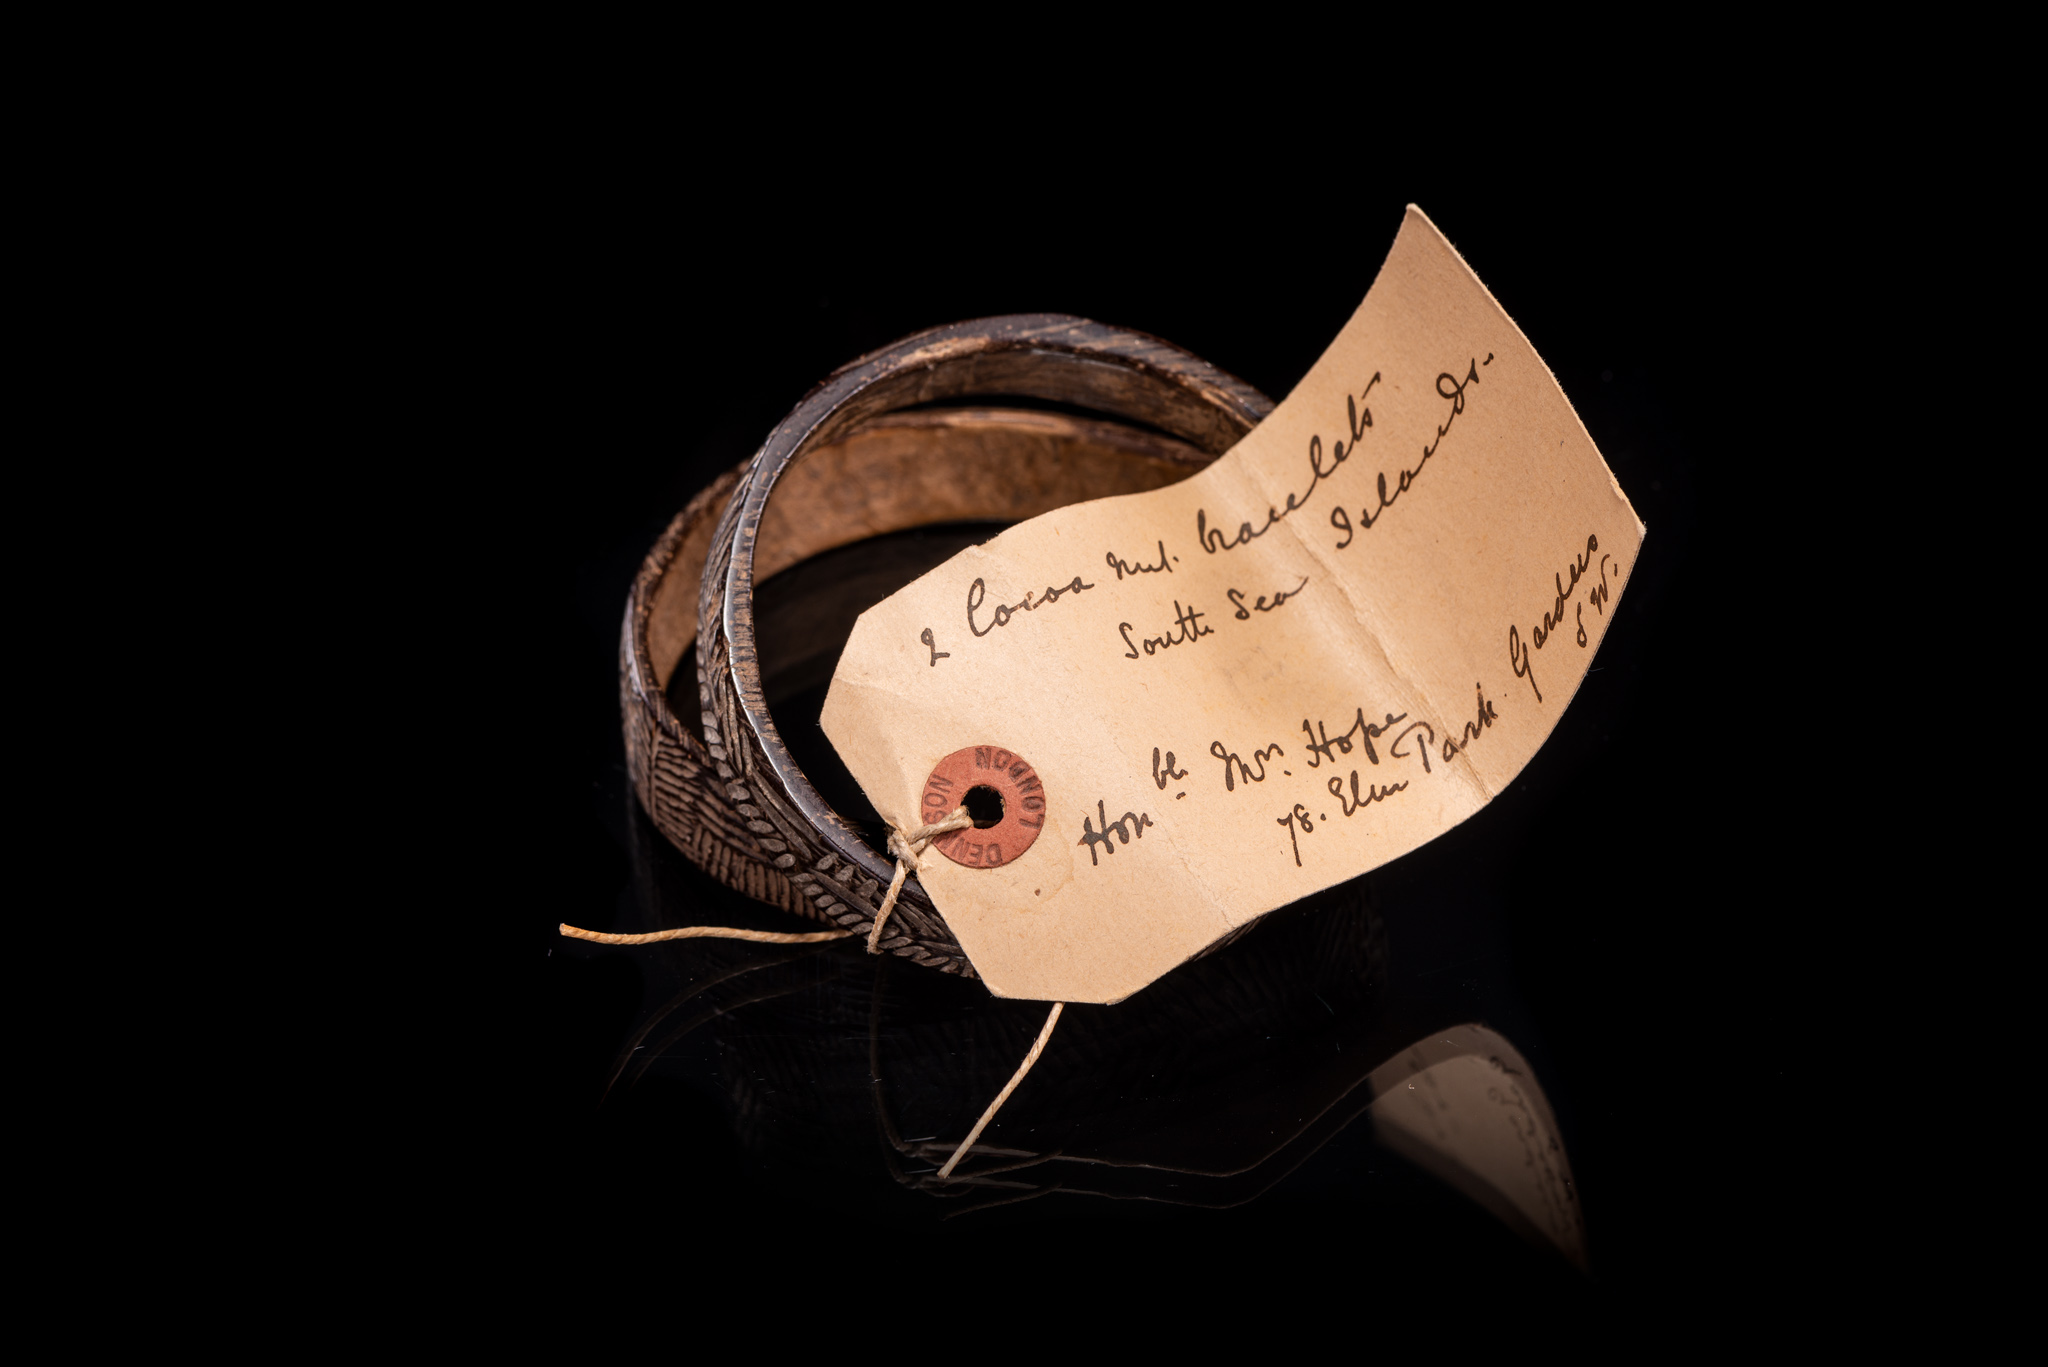 2 Cocoa nut. bracelets
South Sea Islands.
Honble. Mrs. Hope
78. Elm Park. Gardens
S. W.
DENNISON LONDON